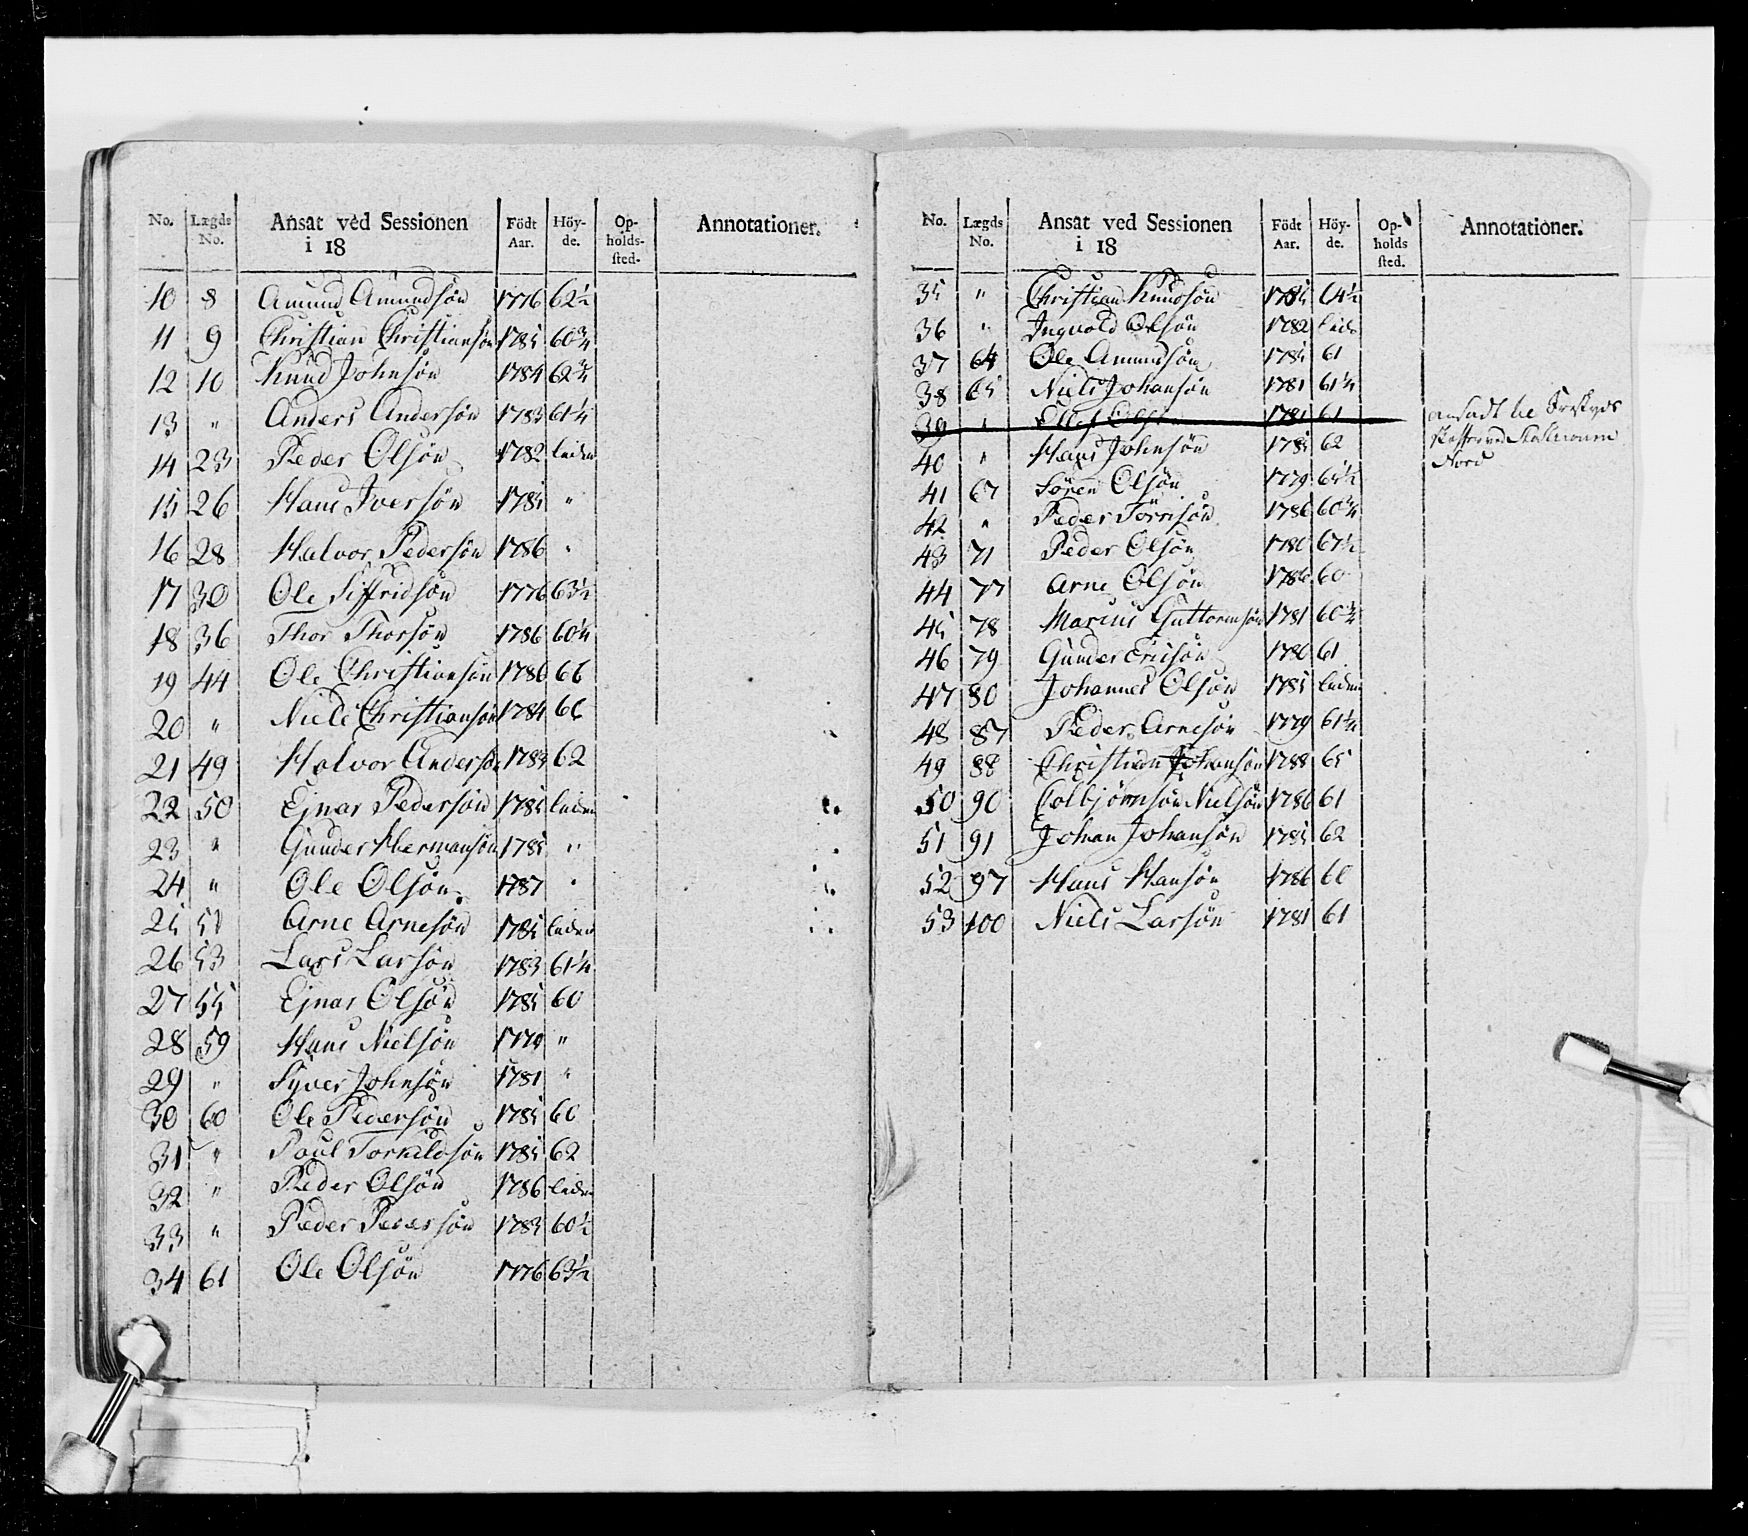 No. Lægds No. Ansat ved Sessionen i 18 Födt Aar. Höyde. Opholdssted. Annotationer.
10 8 Amund Amundsön 1776 62½
11 9 Christian Christiansön 1785 60¾
12 10 Knud Johnsön 1784 62¾
13 " Anders Andersön 1783 61¼
14 23 Peder Olsön 1782 liden
15 26 Hans Iversön 1785 "
16 28 Halvor Pedersön 1786 "
17 30 Ole Siffridsön 1776 63½
18 36 Thor Thorsön 1786 60¼
19 44 Ole Christiansön 1786 66
20 " Niels Christiansön 1784 66
21 49 Halvor Andersön 1783 62
22 50 Ejnar Pedersön 1785 liden
23 " Gunder Hermansön 1785 "
24 " Ole Olsön 1787 "
25 51 Arne Arnesön 1785 liden
26 53 Lars Larsön 1783 61¼
27 55 Ejnar Olsön 1785 60
28 59 Hans Nielsön "
29 " Syver Johnsön 1781 "
30 60 Ole Pedersön 1785 60
31 " Poul Torkildsön 1785 62
32 " Peder Olsön 1786 liden
33 " Peder Pedersön 1783 60½
34 61 Ole Olsön 1776 63½
No. Lægds No. Ansat ved Sessionen i 18 Födt Aar. Höyde. Opholds sted. Annotationer.
35 " Christian Knudsön 1785 64½
36 " Ingvold Olsön 1782 liden
37 64 Ole Amundsön 1785 61
38 65 Niels Johansön 1781 61¼
39 " Olsön 1781 61 ansadt
40 " Hans Johnsön 1785 62
41 67 Sören Olsön 1779 65½
42 " Peder Törrisön 1786 60¾
43 71 Peder Olsön 1786 67½
44 77 Arne Olsön 1786 60
45 78 Marius Guttormsön 1781 60¾
46 79 Gunder Ericsön 1786 61
47 80 Johannes Olsön 1785 liden
48 87 Peder Arnesön 1779 61¼
49 88 Christian Johansön 1788 65
50 90 Colbjörnsön Nielsön 1786 61
51 91 Johan Johansön 1785 62
52 97 Hans Hansön 1786 66
53 100 Niels Larsön 1781 61